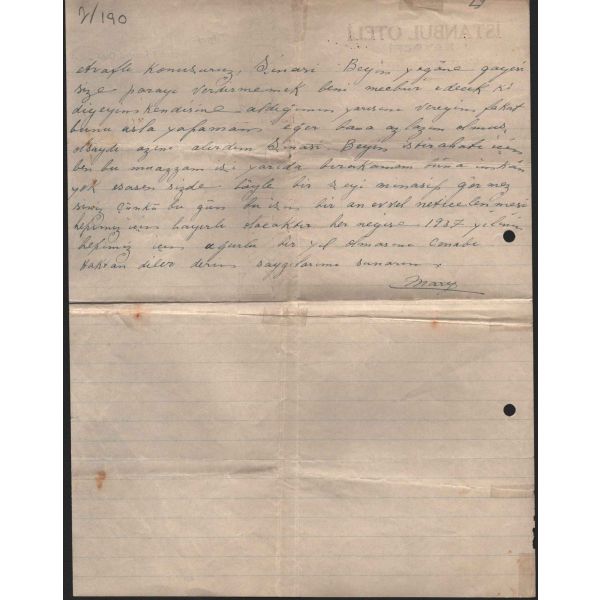 2/190
İSTANBUL OTELİ
konusuruz, Şinasi Beyin yegâne gayesi
size parayı verdirmemek beni mecbur edecek ki
kendisine aldığımın yarısını vereyim fakat
bunu asla yapamam eğer bana lazım olmuş
olsaydı alırdım Şinasi Beyin istirahatı için
ben bu muazzam işi yarıda bırakamam buna imkân
yok esasen sizde böyle bir şeyi münasip görmez
siniz çünkü bu gün bu işin bir an evvel neticelenmesi
hepimiz için hayırlı olacaktır her neyise 1937 yılının
hepimiz için uğurlu bir yıl olmasını Cenabı
Haktan diler derin saygılarımı sunarım.
Mary